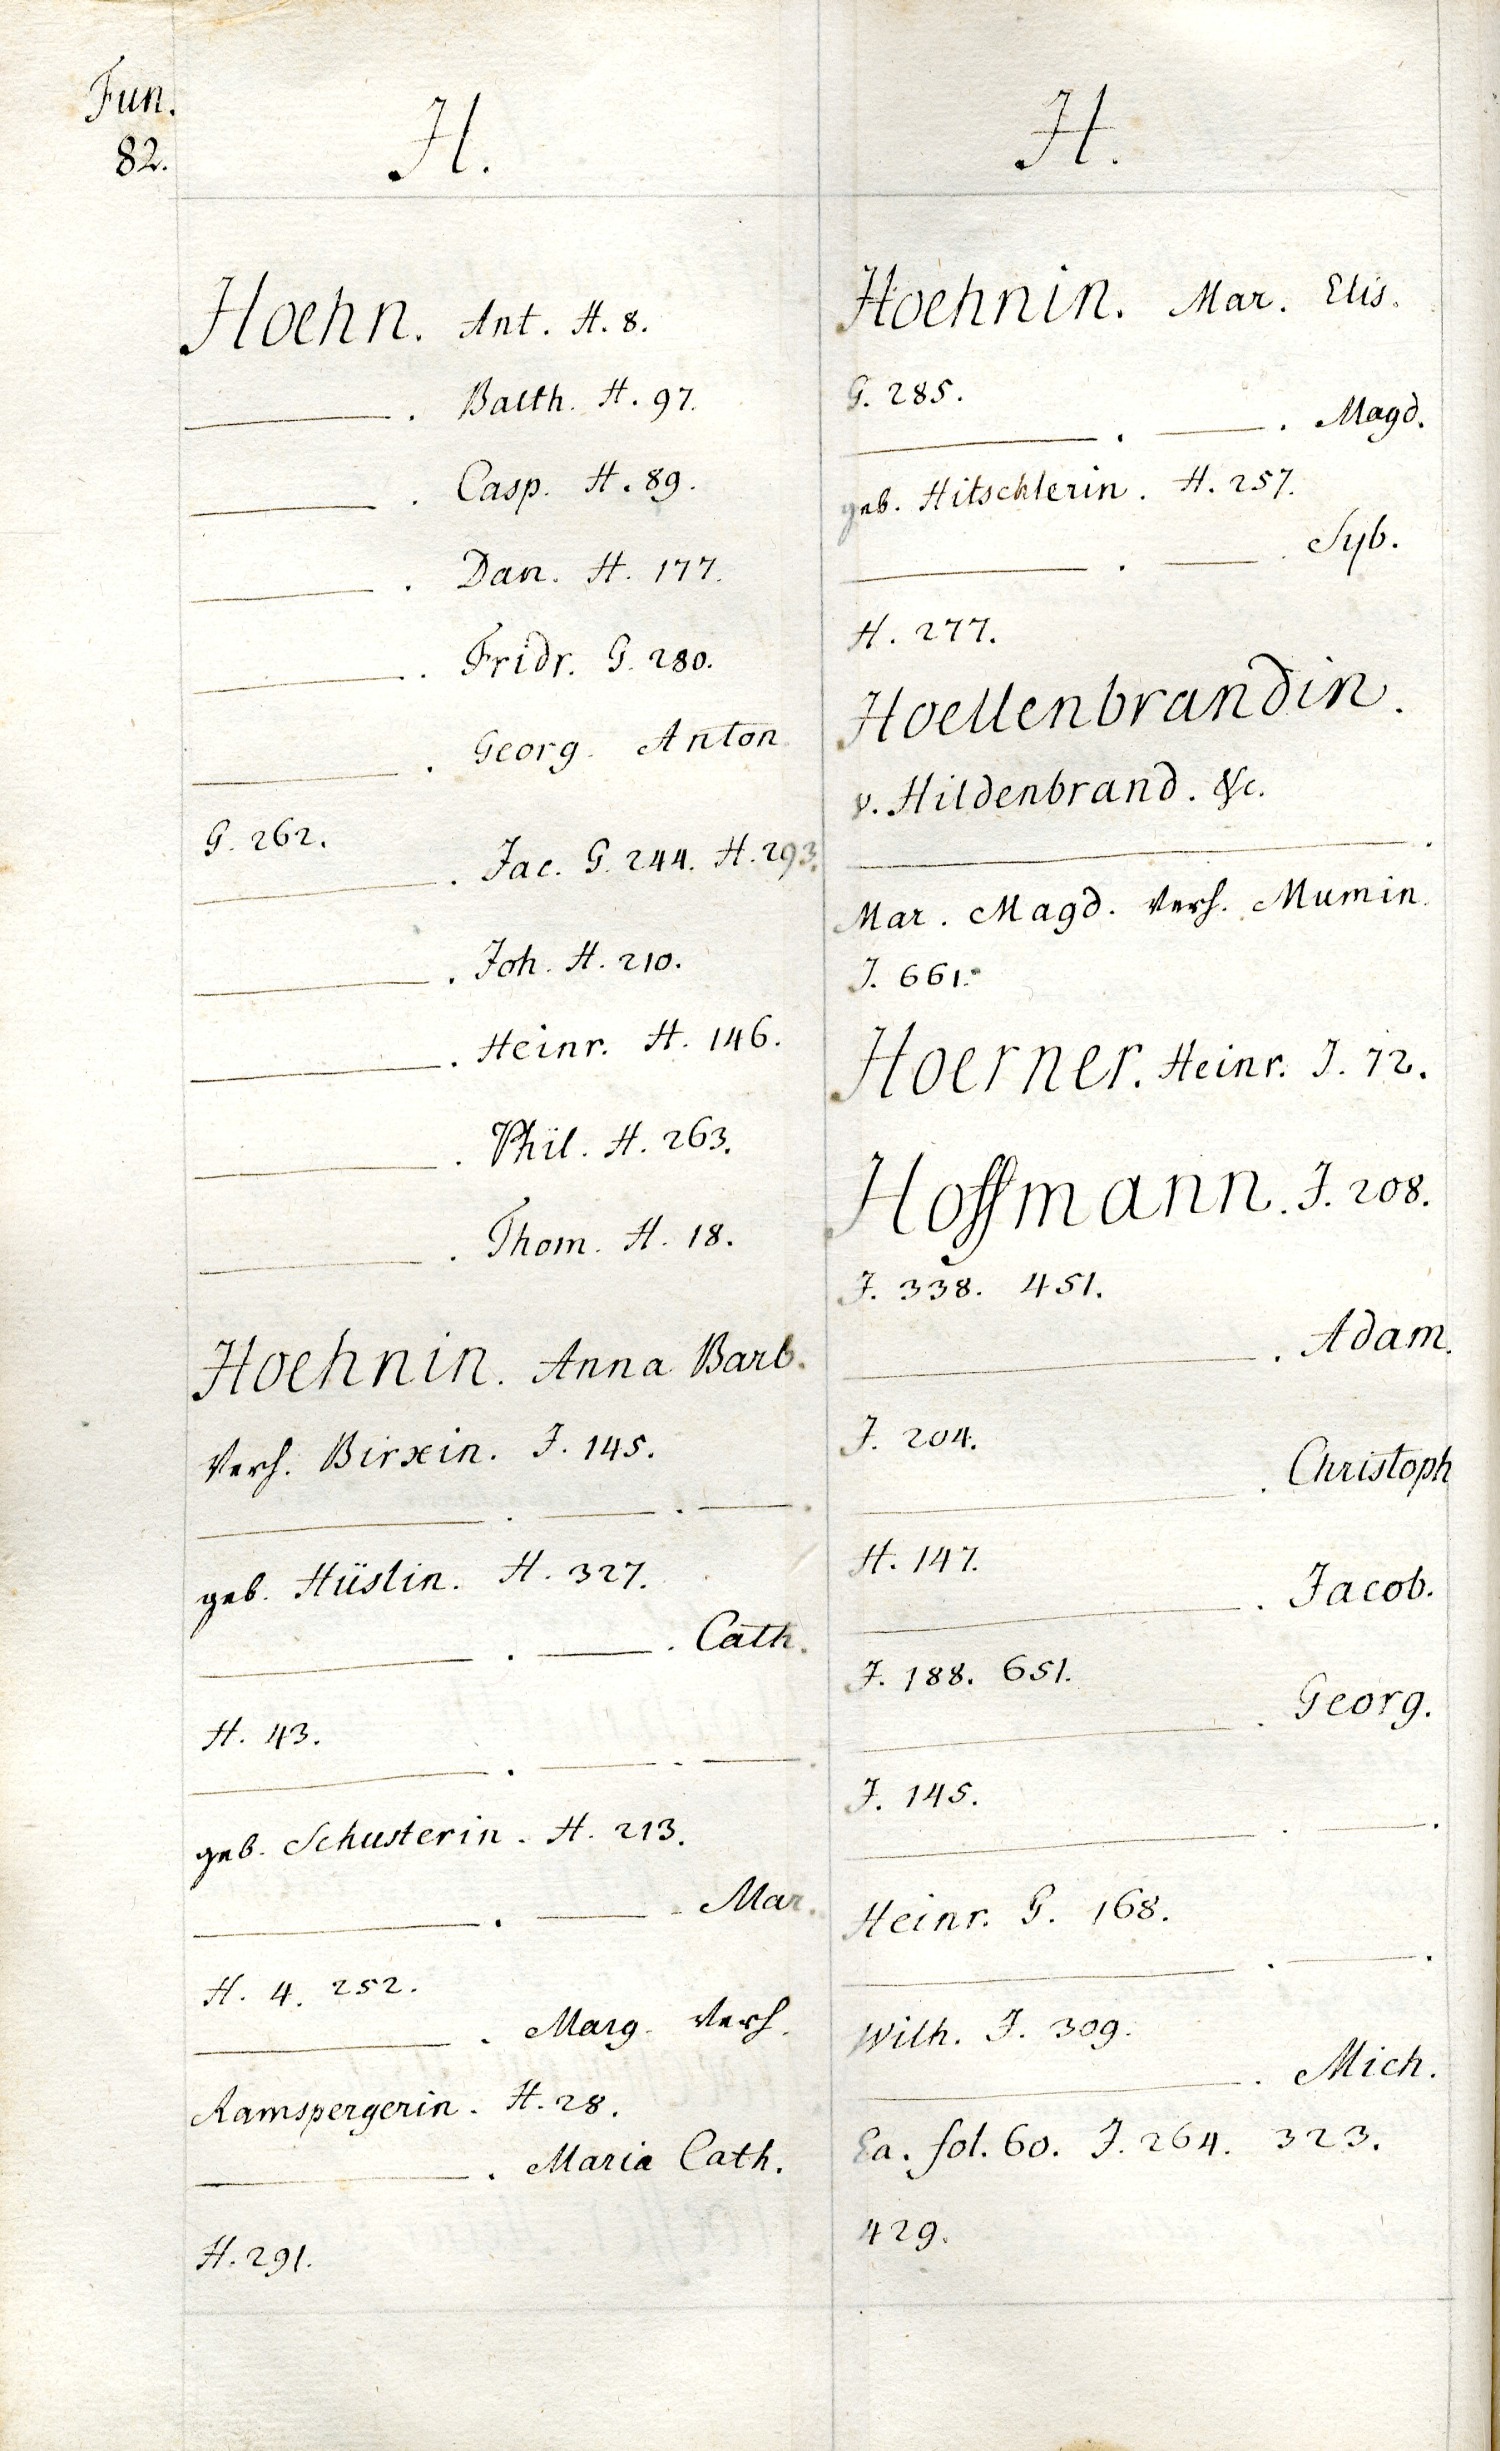 Fun.
82.
H.
Hoehn. Ant. H. 8.
———. Balth. H. 97.
———. Casp. H. 89.
———. Dan. H. 177.
———. Fridr. G. 280.
———. Georg. Anton
G. 262.
———. Jac. G. 244. H. 293.
———. Joh. H. 210.
———. Heinr. H. 146.
———. Phil. H. 263.
———. Thom. H. 18.
Hoehnin. Anna Barb.
verh. Birxin. J. 145.
———. ———. ———.
geb. Hüslin. H. 327.
———. ———. Cath.
H. 43.
———. ———. ———.
geb. Schusterin. H. 213.
———. ———. Mar.
H. 4. 252.
———. Marg. verh.
Ramspergerin. H. 28.
———. Maria Cath.
H. 291.
H.
Hoehnin. Mar. Elis.
G. 285.
———. ———. Magd.
geb. Hitschlerin. H. 257.
———. ———. Syb.
H. 277.
Hoellenbrandin.
v. Hildenbrand. &c.
———.
Mar. Magd. verh. Mumin.
J. 661.
Hoerner. Heinr. J. 72.
Hoffmann. J. 208.
J. 338. 451.
———. Adam.
J. 204.
———. Christoph
H. 147.
———. Jacob.
J. 188. 651.
———. Georg.
J. 145.
———. ———.
Heinr. G. 168.
———. ———.
Wilh. J. 309.
———. Mich.
Ea. fol. 60. J. 264. 323.
429.